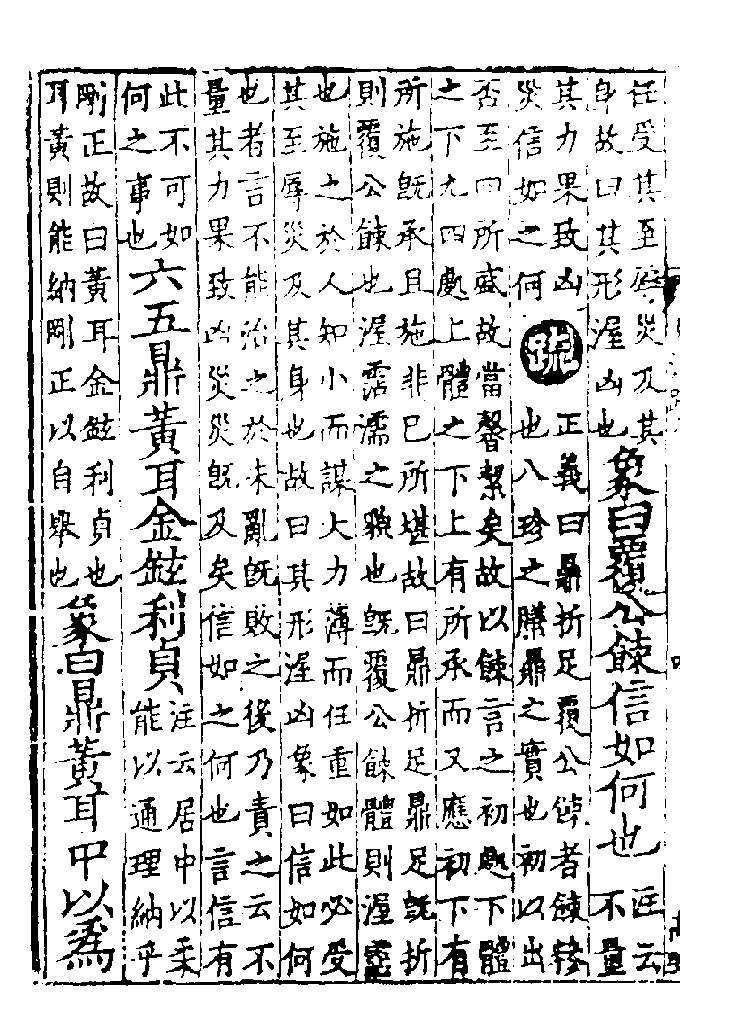 任受其至辱災及其
身故曰其形渥凶也
象曰覆公餗信如何也
注云
不量
其力果致凶
災信如之何
疏
正義曰鼎折足覆公餗者餗糝
也八珍之膳鼎之實也初以出
否至四所盛故當馨絜矣故以餗言之初處下體
之下九四處上體之下上有所承而又應初下有
所施既承且施非已所堪故曰鼎折足鼎足既折
則覆公餗也渥霑濡之貌也既覆公餗體則渥霑
也施之於人知小而謀大力薄而任重如此必受
其至辱災及其身也故曰其形渥凶象曰信如何
也者言不能治之於未亂既敗之後乃責之云不
量其力果致凶災災既及矣信如之何也言信有
此不可如
何之事也
六五鼎黃耳金鉉利貞
注云居中以柔
能以通理納乎
剛正故曰黃耳金鉉利貞也
耳黃則能納剛正以自舉也
象曰鼎黃耳中以爲